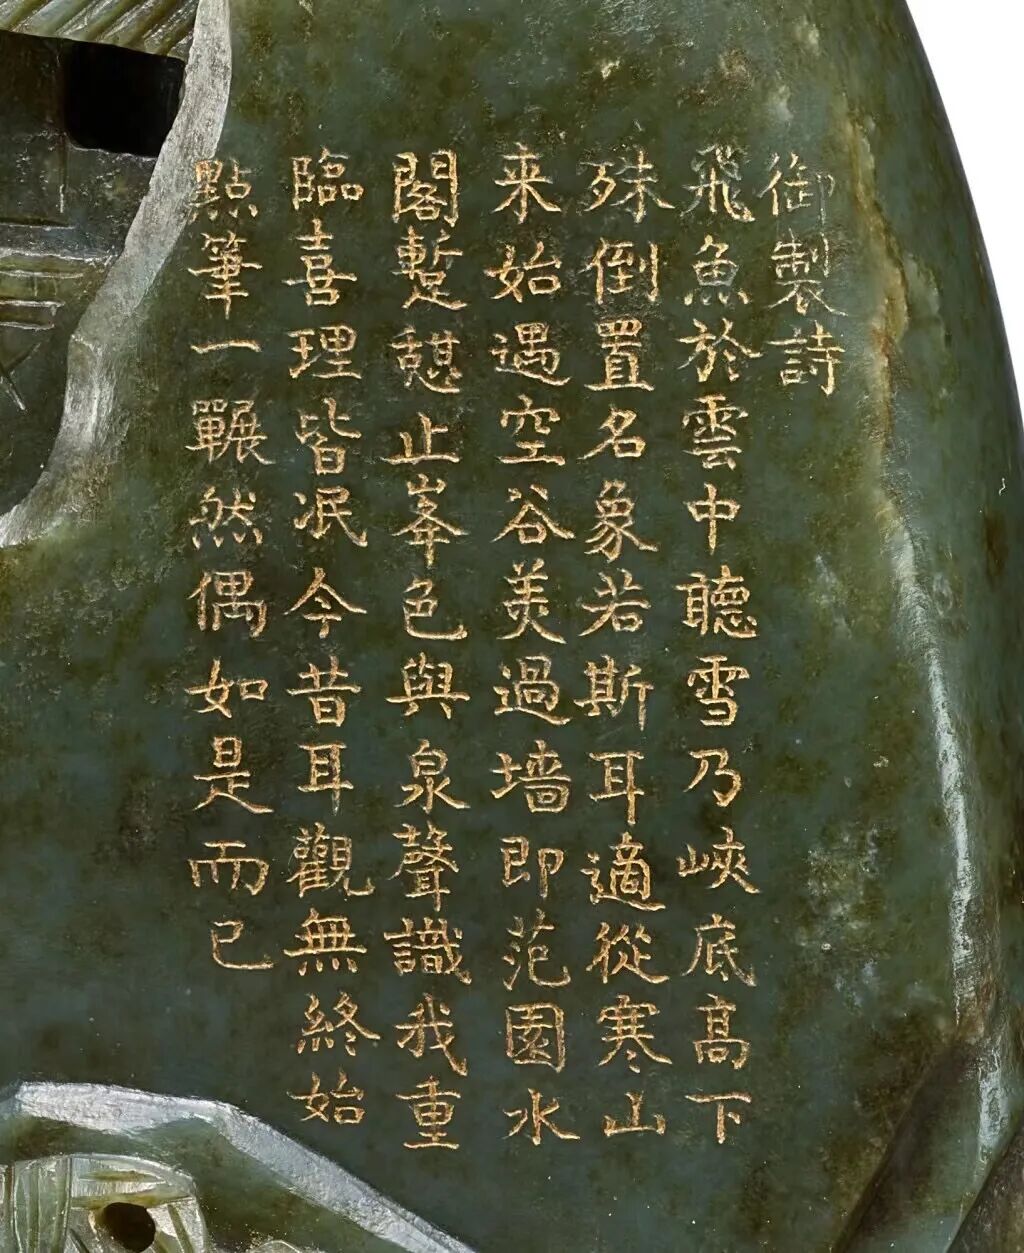 御製詩
飛魚於雲中聽雪乃峽底高下
殊倒置名象若斯耳適從寒山
来始遇空谷美過墙即范園水
閣蹔憩止峯色與泉聲識我重
臨喜理皆泯今昔耳觀無終始
點筆一囅然偶如是而已